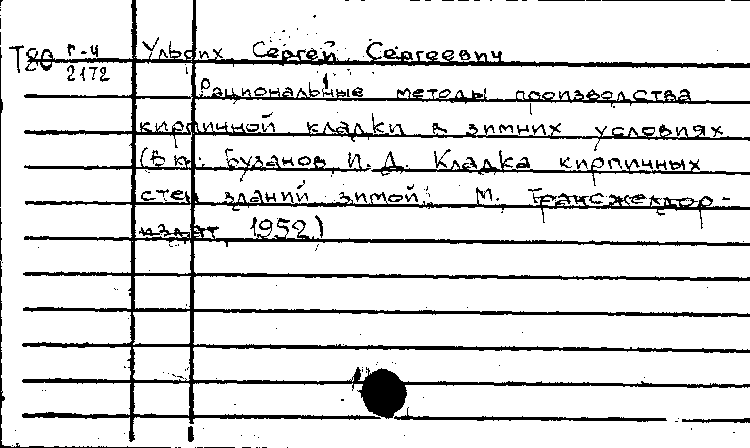 Т80 г-4 Ульрих, Сергей Сергеевич
2172
Рациональные методы производства
кирпичной кладки в зимних условиях
(В кн: Бузанов, И. Д. Кладка кирпичных
стен зданий зимой. М, Трансжелдор-
издат, 1952)